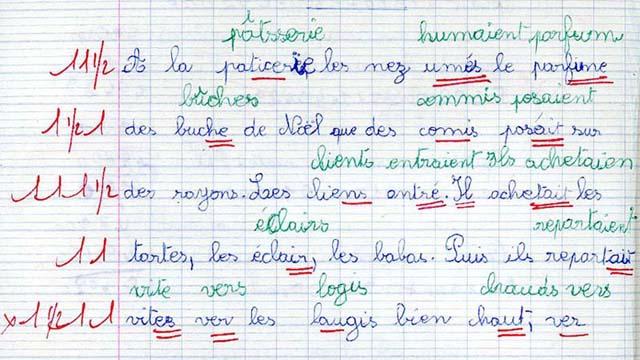 pâtisserie humaient parfum
11 1/2 A la paticerie les nez umés le parfume
bûches commis posaient
1 1/2 1 des buche de Noël que des comis posait sur
clients entraient Ils achetaien
1 1 1 1/2 des rayons. Les liens entré. Il achetait les
éclairs repartaient
1 1 tortes, les éclair, les babas. Puis ils repartait
vite vers logis chauds vers
x 1 1/2 1 1 vites ver les laugis bien chaut, ver